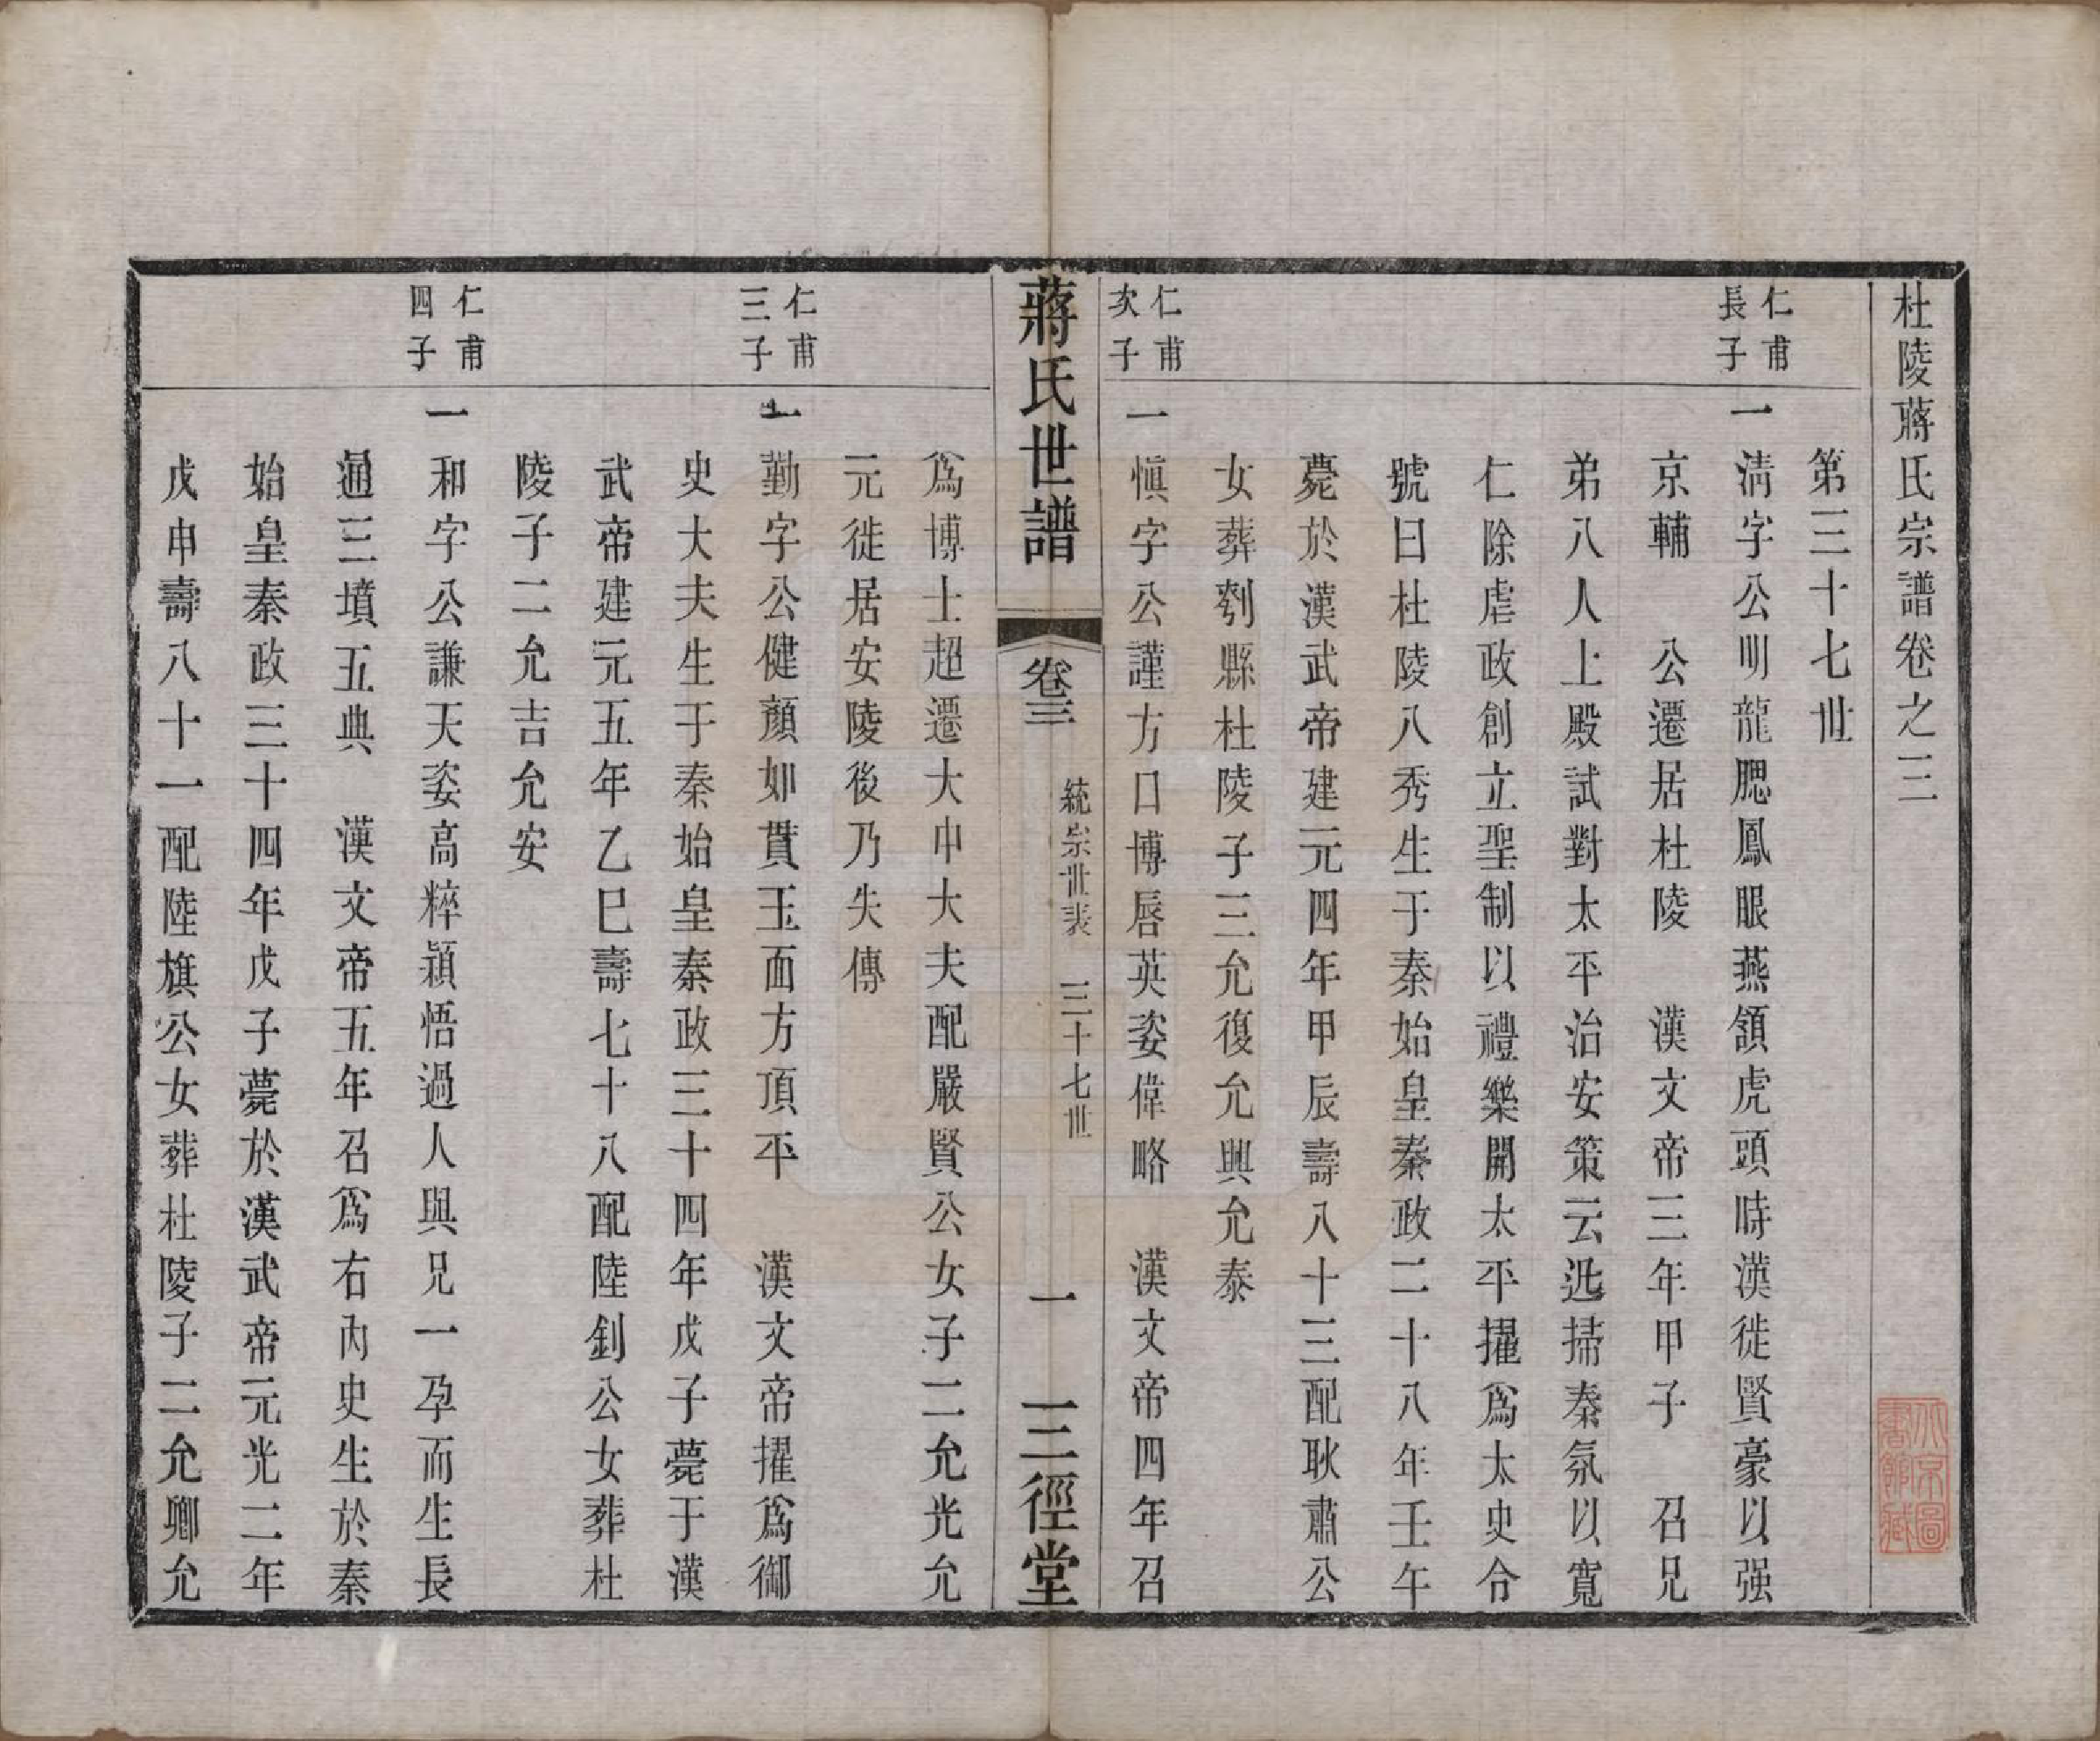 杜陵蔣氏宗譜卷之三
第三十七世
仁甫
長子
一淸字公明龍腮鳳眼燕頷虎頭時漢徙賢豪以强
京輔　公遷居杜陵　漢文帝三年甲子　召兄
弟八人上殿試對太平治安策云迅掃秦氛以寬
仁除虐政創立聖制以禮樂開太平擢爲太史令
號曰杜陵八秀生于秦始皇秦政二十八年壬午
薨於漢武帝建元四年甲辰壽八十三配耿肅公
女葬剢縣杜陵子三允復允興允泰
仁甫
次子
一愼字公謹方口博唇英姿偉略　漢文帝四年召
蔣氏世譜
卷三
統宗世表　三十七世
一
三徑堂
爲博士超遷大中大夫配嚴賢公女子二允光允
元徙居安陵後乃失傳
仁甫
三子
一勤字公健顏如貫玉面方頂平　漢文帝擢爲御
史大夫生于秦始皇秦政三十四年戊子薨于漢
武帝建元五年乙巳壽七十八配陸釗公女葬杜
陵子二允吉允安
仁甫
四子
一和字公謙天姿高粹穎悟過人與兄一孕而生長
通三墳五典　漢文帝五年召爲右內史生於秦
始皇秦政三十四年戊子薨於漢武帝元光二年
戊申壽八十一配陸旗公女葬杜陵子二允卿允